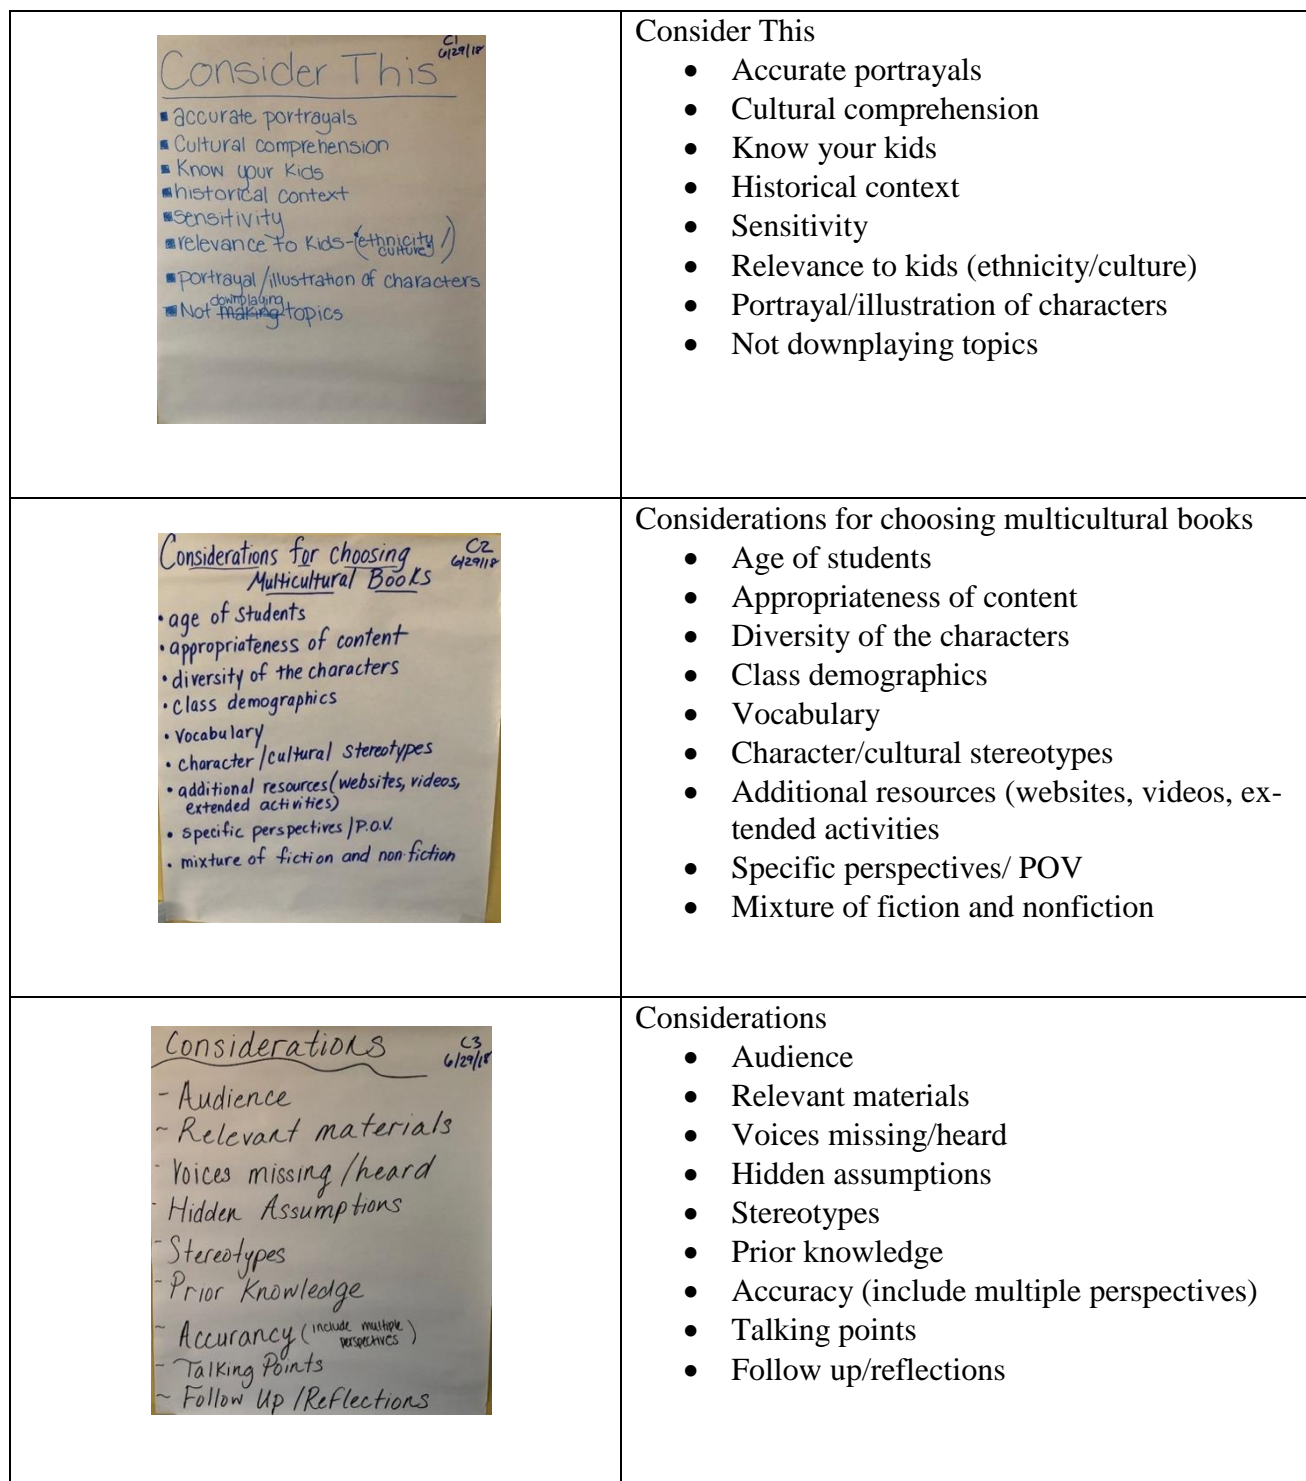 C1
6/29/18
Consider This
▪ accurate portrayals
▪ Cultural comprehension
▪ Know your Kids
▪ historical context
▪ sensitivity
▪ relevance to Kids-(ethnicity/
culture)
▪ portrayal/illustration of characters
downplaying
▪ Not making topics
Consider This
• Accurate portrayals
• Cultural comprehension
• Know your kids
• Historical context
• Sensitivity
• Relevance to kids (ethnicity/culture)
• Portrayal/illustration of characters
• Not downplaying topics
C2
6/29/18
Considerations for choosing
Multicultural Books
• age of students
• appropriateness of content
• diversity of the characters
• class demographics
• vocabulary
• character/cultural stereotypes
• additional resources (websites, videos,
extended activities)
• specific perspectives/P.O.V.
• mixture of fiction and non-fiction
Considerations for choosing multicultural books
• Age of students
• Appropriateness of content
• Diversity of the characters
• Class demographics
• Vocabulary
• Character/cultural stereotypes
• Additional resources (websites, videos, ex-
tended activities
• Specific perspectives/ POV
• Mixture of fiction and nonfiction
C3
6/29/18
Considerations
- Audience
- Relevant materials
- Voices missing/heard
- Hidden Assumptions
- Stereotypes
- Prior Knowledge
- Accurancy (include multiple
perspectives)
- Talking Points
- Follow Up/Reflections
Considerations
• Audience
• Relevant materials
• Voices missing/heard
• Hidden assumptions
• Stereotypes
• Prior knowledge
• Accuracy (include multiple perspectives)
• Talking points
• Follow up/reflections